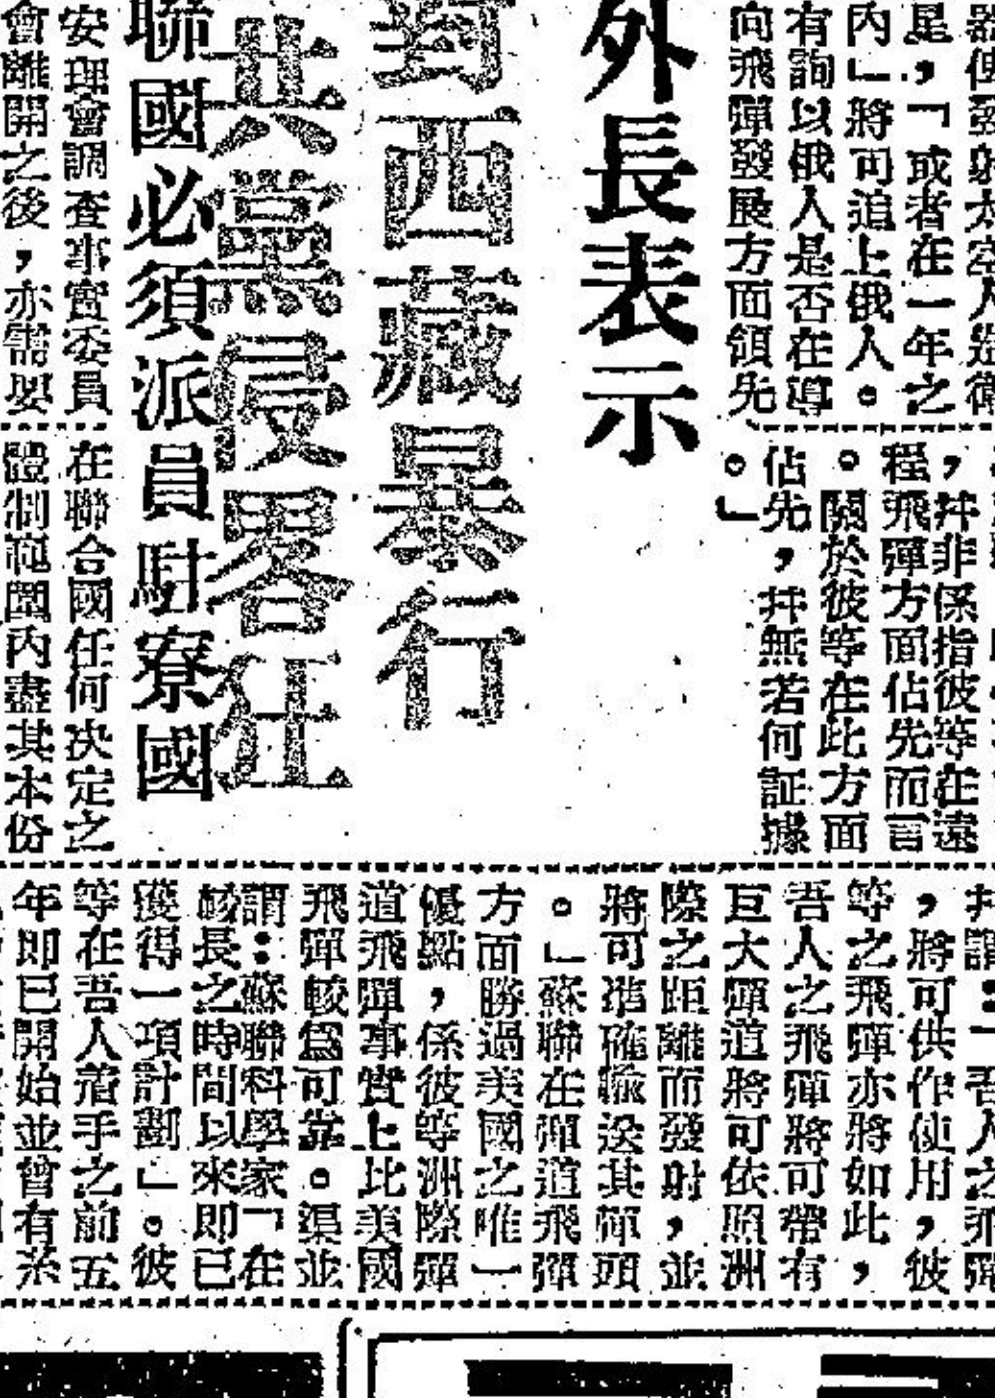 器使發射太空人造衛
星，「或者在一年之
內」將可追上俄人。
有詢以俄人是否在導
向飛彈發展方面領先
，幷非係指彼等在遠
程飛彈方面佔先而言
。關於彼等在此方面
佔先，幷無若何証據
。」
外長表示
對西藏暴行
共黨侵畧狂
聯國必須派員駐寮國
安理會調查事實委員
會離開之後，亦需要
在聯合國任何決定之
體制範圍內盡其本份
幷謂：「吾人之飛彈
，將可供作使用，彼
等之飛彈亦將如此，
吾人之飛彈將可帶有
巨大彈道將可依照洲
際之距離而發射，並
將可準確輸送其彈頭
。」蘇聯在彈道飛彈
方面勝過美國之唯一
優點，係彼等洲際彈
道飛彈事實上比美國
飛彈較為可靠。渠並
謂：蘇聯科學家「在
較長之時間以來即已
獲得一項計劃」。彼
等在吾人着手之前五
年即已開始並曾有系